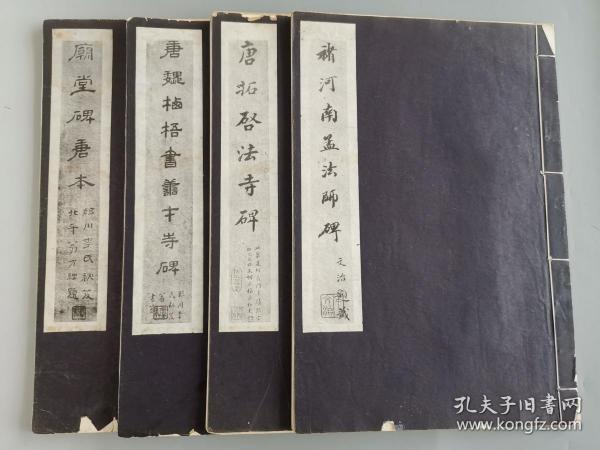 褚河南孟法師碑
文治
唐拓啓法寺碑
唐魏栖梧書善才寺碑
廟堂碑唐本
臨川李氏秘笈
北平翁方綱題
孔夫子旧書网
www.kongfz.com